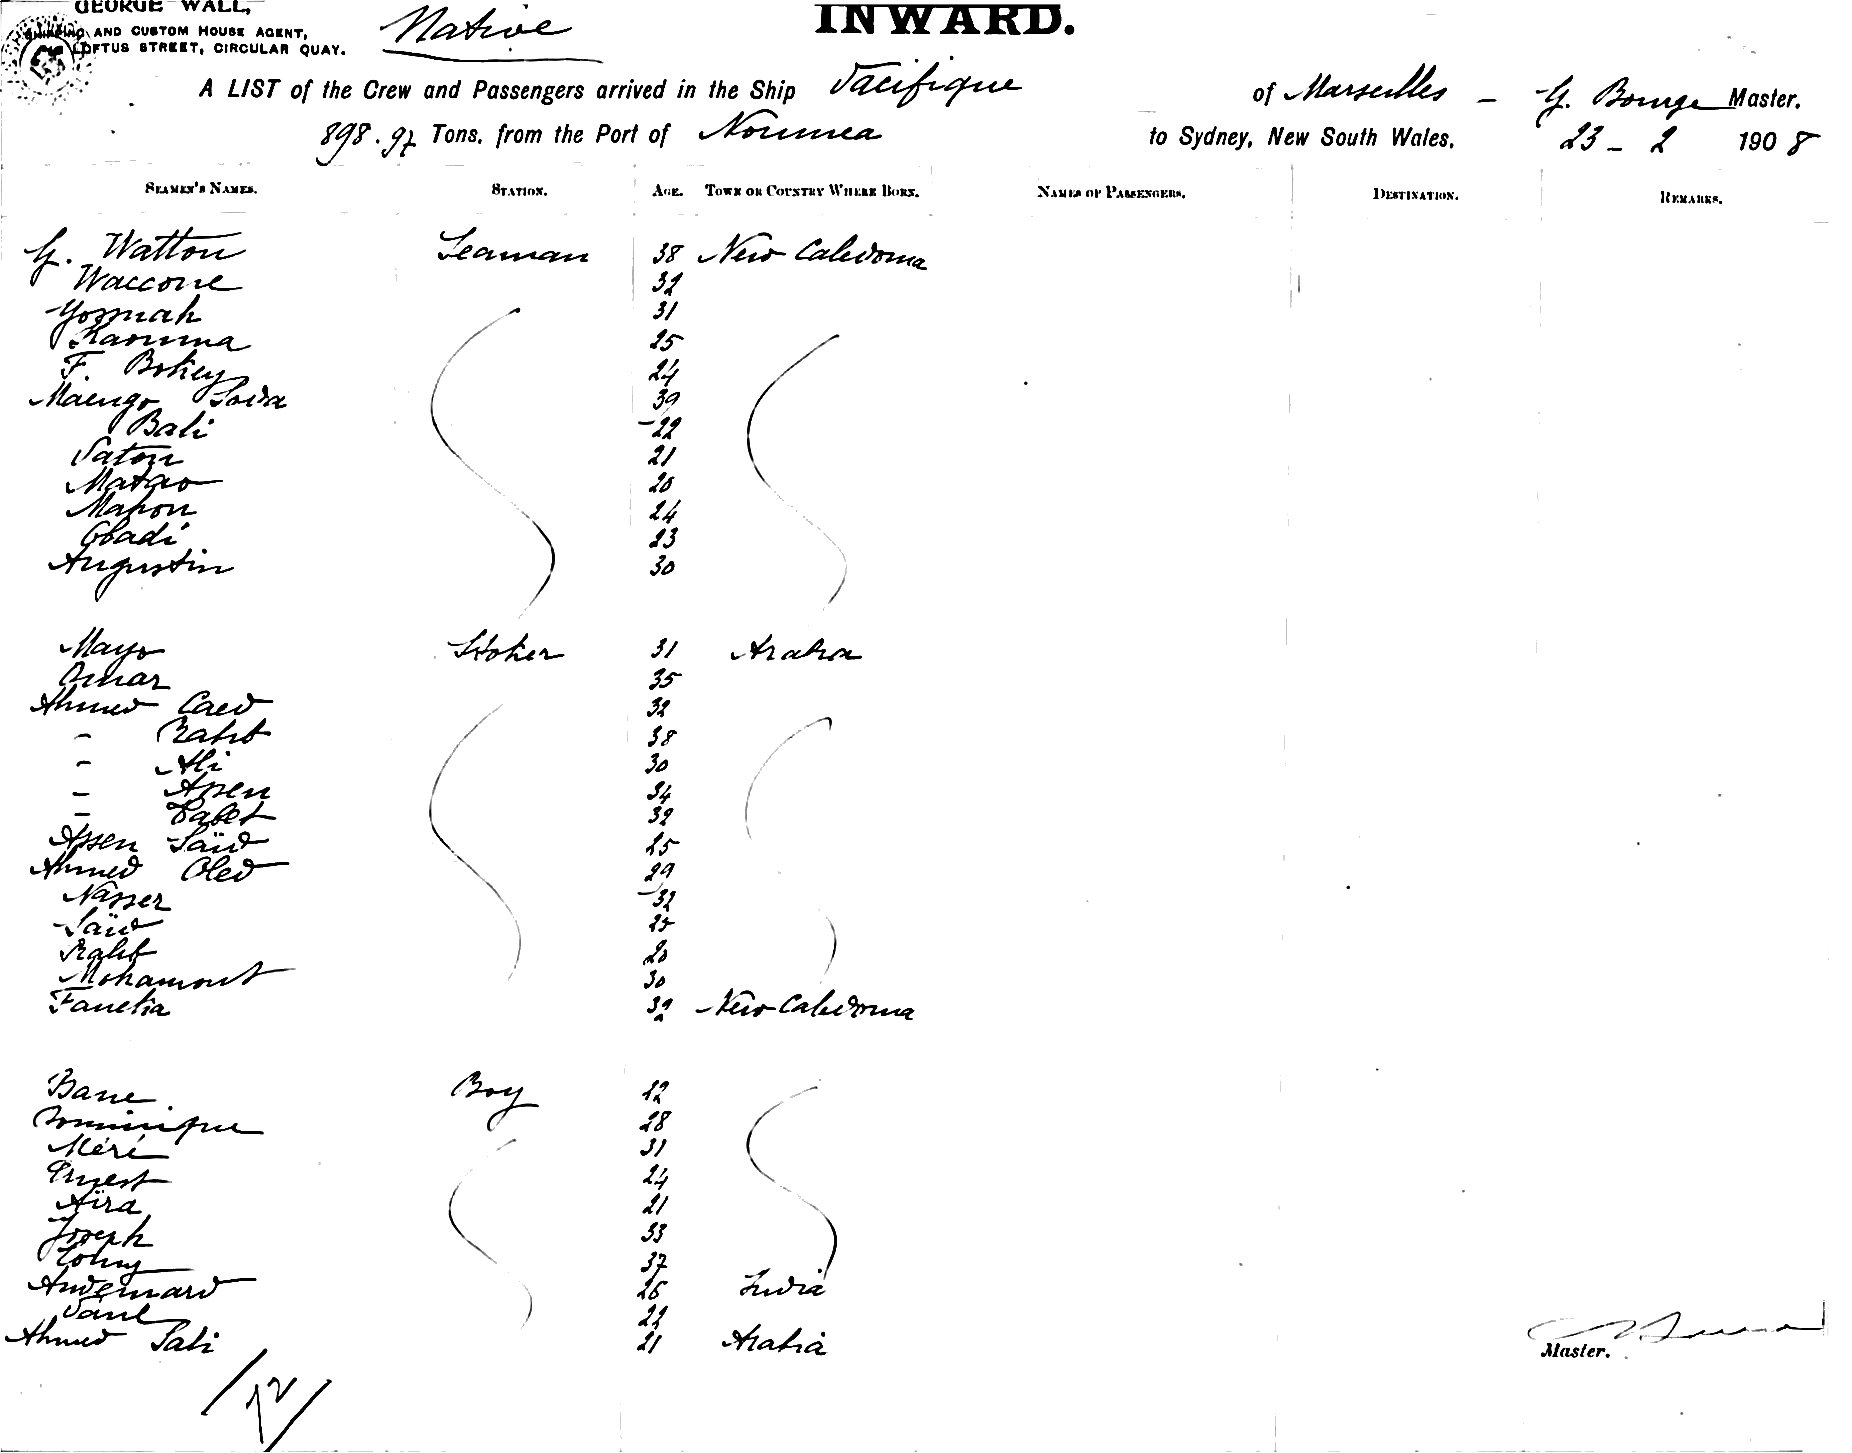 GEORGE WALL,
SHIPPING AND CUSTOM HOUSE AGENT,
LOFTUS STREET, CIRCULAR QUAY.
Native
INWARD.
A LIST of the Crew and Passengers arrived in the Ship Pacifique of Marseilles - G. Bourge Master.
898.97 Tons. from the Port of Noumea to Sydney, New South Wales. 23 - 2 1908
SEAMEN'S NAMES. STATION. AGE. TOWN OR COUNTRY WHERE BORN. NAMES OF PASSENGERS. DESTINATION. REMARKS.
G. Watton Seaman 38 New Caledonia
Waccone 32
31
Kaouma 25
F. Bokey 24
Maengo 39
Bali 22
Paton 21
Matao 20
Mapou 24
Obadi 23
Augustin 30
Mayo Stoker 31 Arabia
Omar 35
Ahmed Caed 32
- 38
- Ali 30
- Assen 34
- 32
Assen Saïd 25
Ahmed Oled 29
Nasser 32
Saïd 25
20
30
32 New Caledonia
Bane Boy 12
Dominique 28
Méré 31
Ernest 24
Aïra 21
Joseph 33
37
26 India
Paul 22
Ahmed Sali 21 Arabia
Master.
12